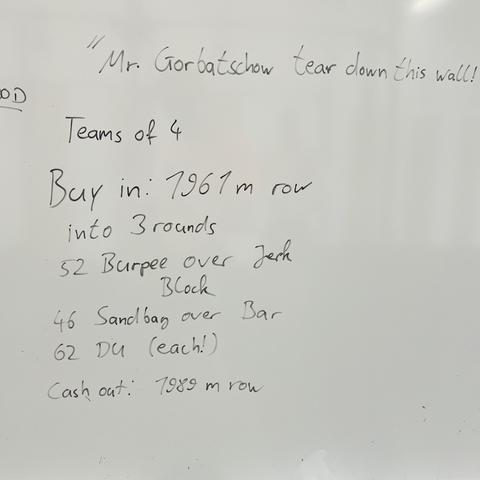 " Mr. Gorbatschow tear down this wall!
OD
Teams of 4
Buy in: 1961 m row
into 3 rounds
52 Burpee over Jerk
Block
46 Sandbag over Bar
62 DU (each!)
Cash out: 1989 m row